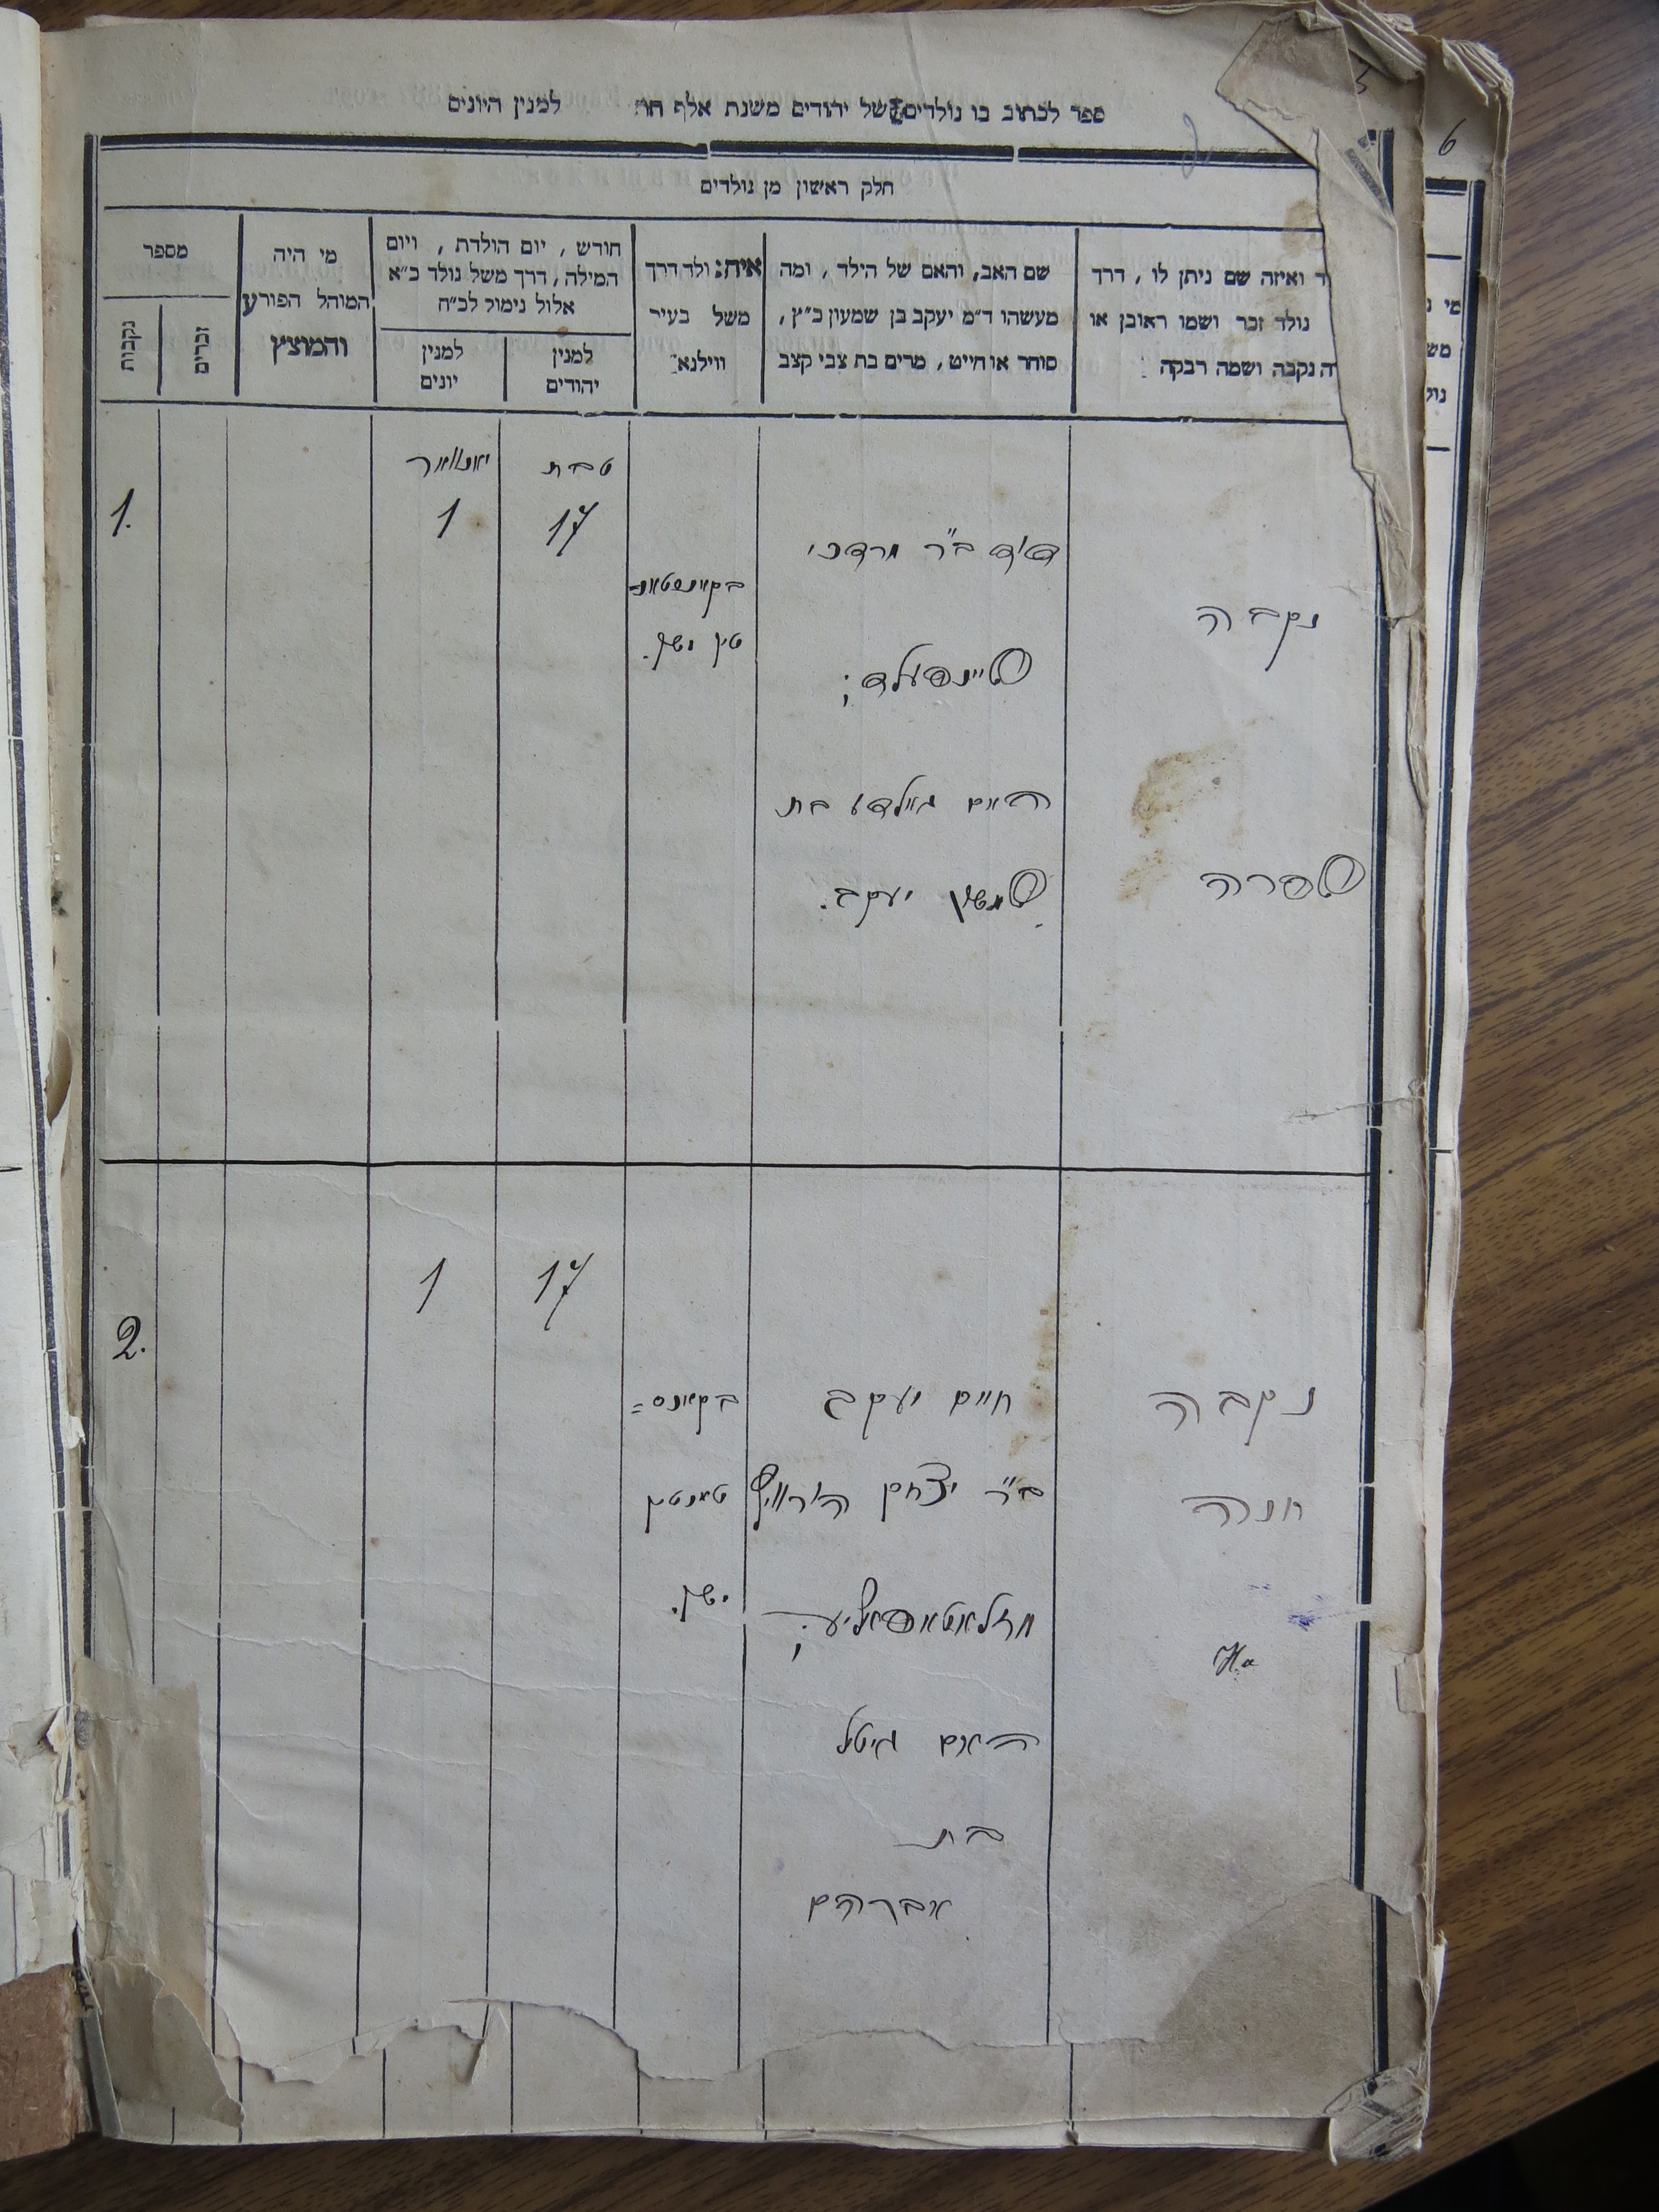 ספר לכתוב בו נולדים של יהודים משנת אלף תת למנין היונים
6
חלק ראשון מן נולדים
ואיזה שם ניתן לו, דרך
נולד זכר ושמו ראובן או
נקבה ושמה רבקה
שם האב, והאם של הילד, ומה
מעשהו ד״מ יעקב בן שמעון כ״ץ,
סוחר או חייט, מרים בת צבי קצב
איה נולד דרך
משל בעיר
ווילנא
חורש, יום הולדת, ויום
המילה, דרך משל נולד כ״א
אלול נימול לכ״ח
למנין
יהודים
למנין
יונים
מי היה
המוהל הפורע
והמוצץ
מספר
זכרים
נקבות
נקבה
שפרה
דוד ב״ר מרדכי
שיינפעלד;
האם גאלדע בת
שמשון יעקב.
בקאנסטאנ
טין ישן.
טבת
17
יאנוואר
1
1.
נקבה
חנה
חיים יעקב
ב״ר יצחק הורוויץ
מזלאטאפאליע;
האם גיטל
בת
אברהם
בקאנס=
טאנטין
ישן.
17
1
2.